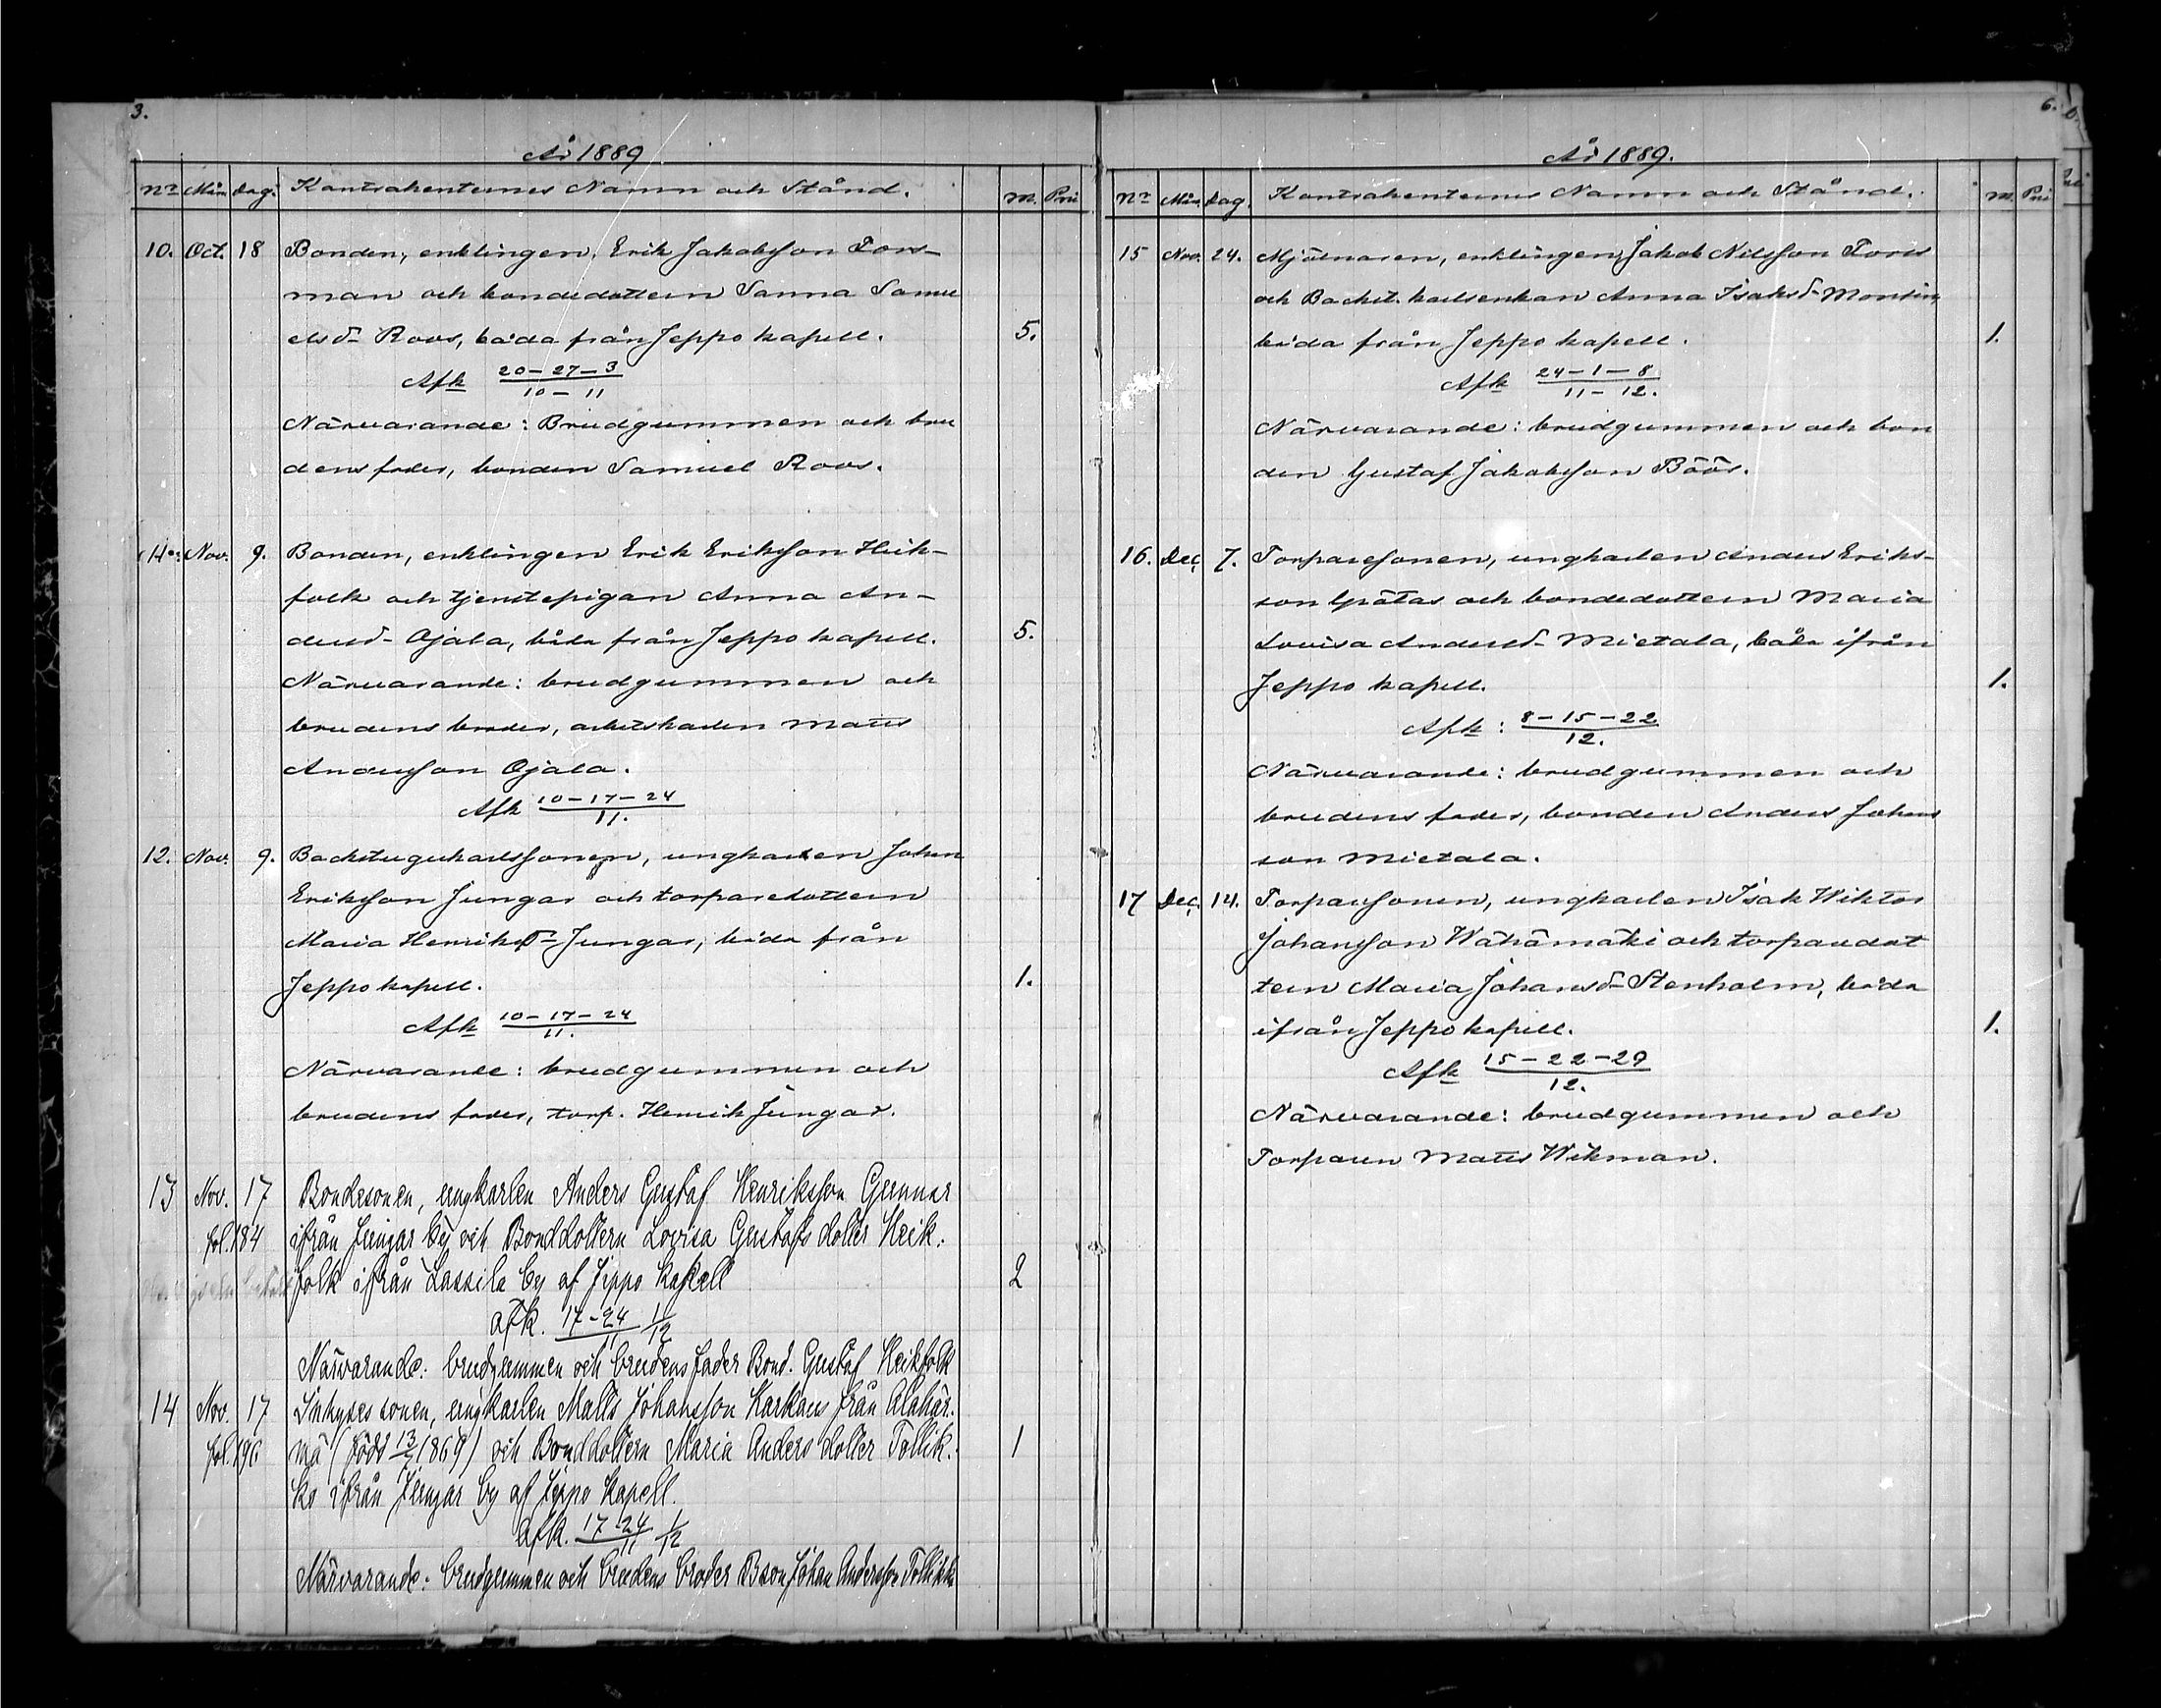 3.
År 1889
No Mån. Dag. Kontrahenternes Namn och Stånd. M. Pni
10. Oct. 18 Bonden, enklingen, Erik Jakobsson Fors-
man och bondedottern Sanna Samu
elsd- Roos, båda från Jeppo kapell. 5.
Afk 20-27-3
10-11
Närvarande: Brudgummen och bru
dens fader, bonden Samuel Roos.
11. Nov. 9. Bonden, enklingen Erik Eriksson Heik-
folk och tjenstepigan Anna An-
dersd- Ojala, båda från Jeppo kapell. 5.
Närvarande: brudgummen och
brudens broder, arbetskarlen Matts
Andersson Ojala.
Afk 10-17-24
11.
12. Nov. 9. Backstugukarlssonen, ungkarlen Johan
Eriksson Jungar och torparedottern
Maria Henriksd- Jungar, båda från
Jeppo kapell. 1.
Afk 10-17-24
11.
Närvarande: brudgummen och
brudens fader, torp. Henrik Jungar.
13 Nov. 17 Bondesonen, ungkarlen Anders Gustaf Henriksson Gunnar
fol. 184 ifrån Jungar by och Bonddottern Lovisa Gustafs dotter Heik-
folk ifrån Lassila by af Jeppo Kapell 2
afk. 17-24 1
11 12
Närvarande: brudgummen och brudens fader Bond. Gustaf Heikfolk
14 Nov. 17 Inhyses sonen, ungkarlen Matts Johansson Karkaus från Alahär-
fol. 196 mä (född 13 1869) och Bonddottern Maria Anders dotter Tollik- 1
ko ifrån Jungar by af Jeppo Kapell.
afk. 17-24 1
11 12
Närvarande: brudgummen och brudens broder Bson Johan Andersson Tollikko
6.
År 1889.
No Mån. Dag. Kontrahenternes Namn och Stånd. M. Pni
15 Nov. 24. Mjölnaren, enklingen Jakob Nilsson Fors
och Backst. karlsenkan Anna Isaksd- Montin,
båda från Jeppo kapell. 1.
Afk 24-1-8
11-12.
Närvarande: brudgummen och bon
den Gustaf Jakobsson Böös.
16. Dec. 7. Torparesonen, ungkarlen Anders Eriks-
son Grötas och bondedottern Maria
Lovisa Andersd- Mietala, båda ifrån
Jeppo kapell. 1.
Afk: 8-15-22
12.
Närvarande: brudgummen och
brudens fader, bonden Anders Johans
son Mietala.
17 Dec. 14. Torparsonen, ungkarlen Isak Wiktor
Johansson Wähämäki och torpardot
tern Maria Johansd- Stenholm, båda
ifrån Jeppo kapell. 1.
Afk 15-22-29
12.
Närvarande: brudgummen och
Torparen Matts Wikman.